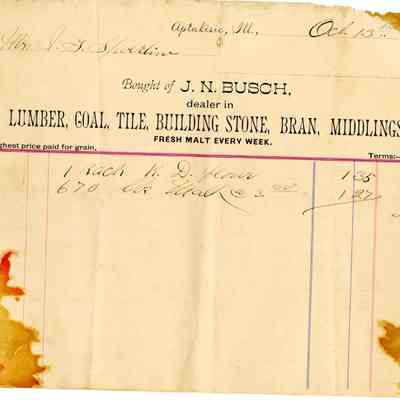 Aptakisic, Ill., Oct 13th
Mr. J. F.
Bought of J. N. BUSCH,
dealer in
LUMBER, COAL, TILE, BUILDING STONE, BRAN, MIDDLINGS
FRESH MALT EVERY WEEK.
ghest price paid for grain, Terms:
1 sack K. D. flour 1 35
670 @ 3 1 27